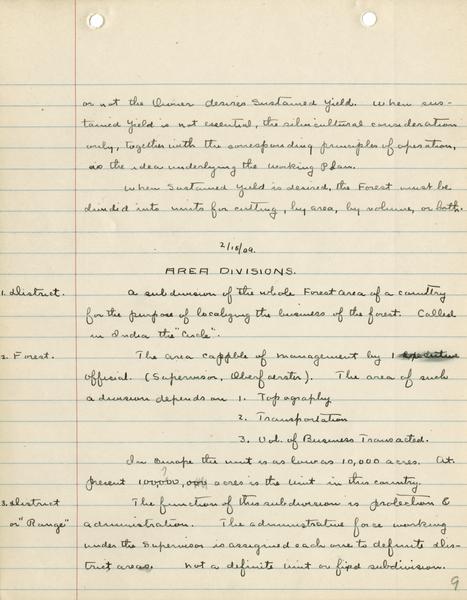 or not the Owner desires Sustained Yield. When sus-
tained Yield is not essential, the silvicultural consideration
only, together with the corresponding principles of operation,
is the idea underlying the Working Plan.
When Sustained Yield is desired, the Forest must be
divided into units for cutting, by area, by volume, or both.
2/15/09.
AREA DIVISIONS.
1. District. A subdivision of the whole Forest area of a country
for the purpose of localizing the business of the forest. Called
in India the "Circle".
2. Forest. The area capable of management by 1 executive
official. (Supervisor, Oberfoerster). The area of such
a division depends on 1. Topography
2. Transportation
3. Vol. of Business Transacted.
In Europe the unit is as low as 10,000 acres. At
present 100,000, acres is the Unit in this country.
3. District The function of this subdivision is protection &
or "Range" administration. The administrative force working
under the Supervisor is assigned each one to definite dis-
trict areas. Not a definite unit or fixed subdivision.
9